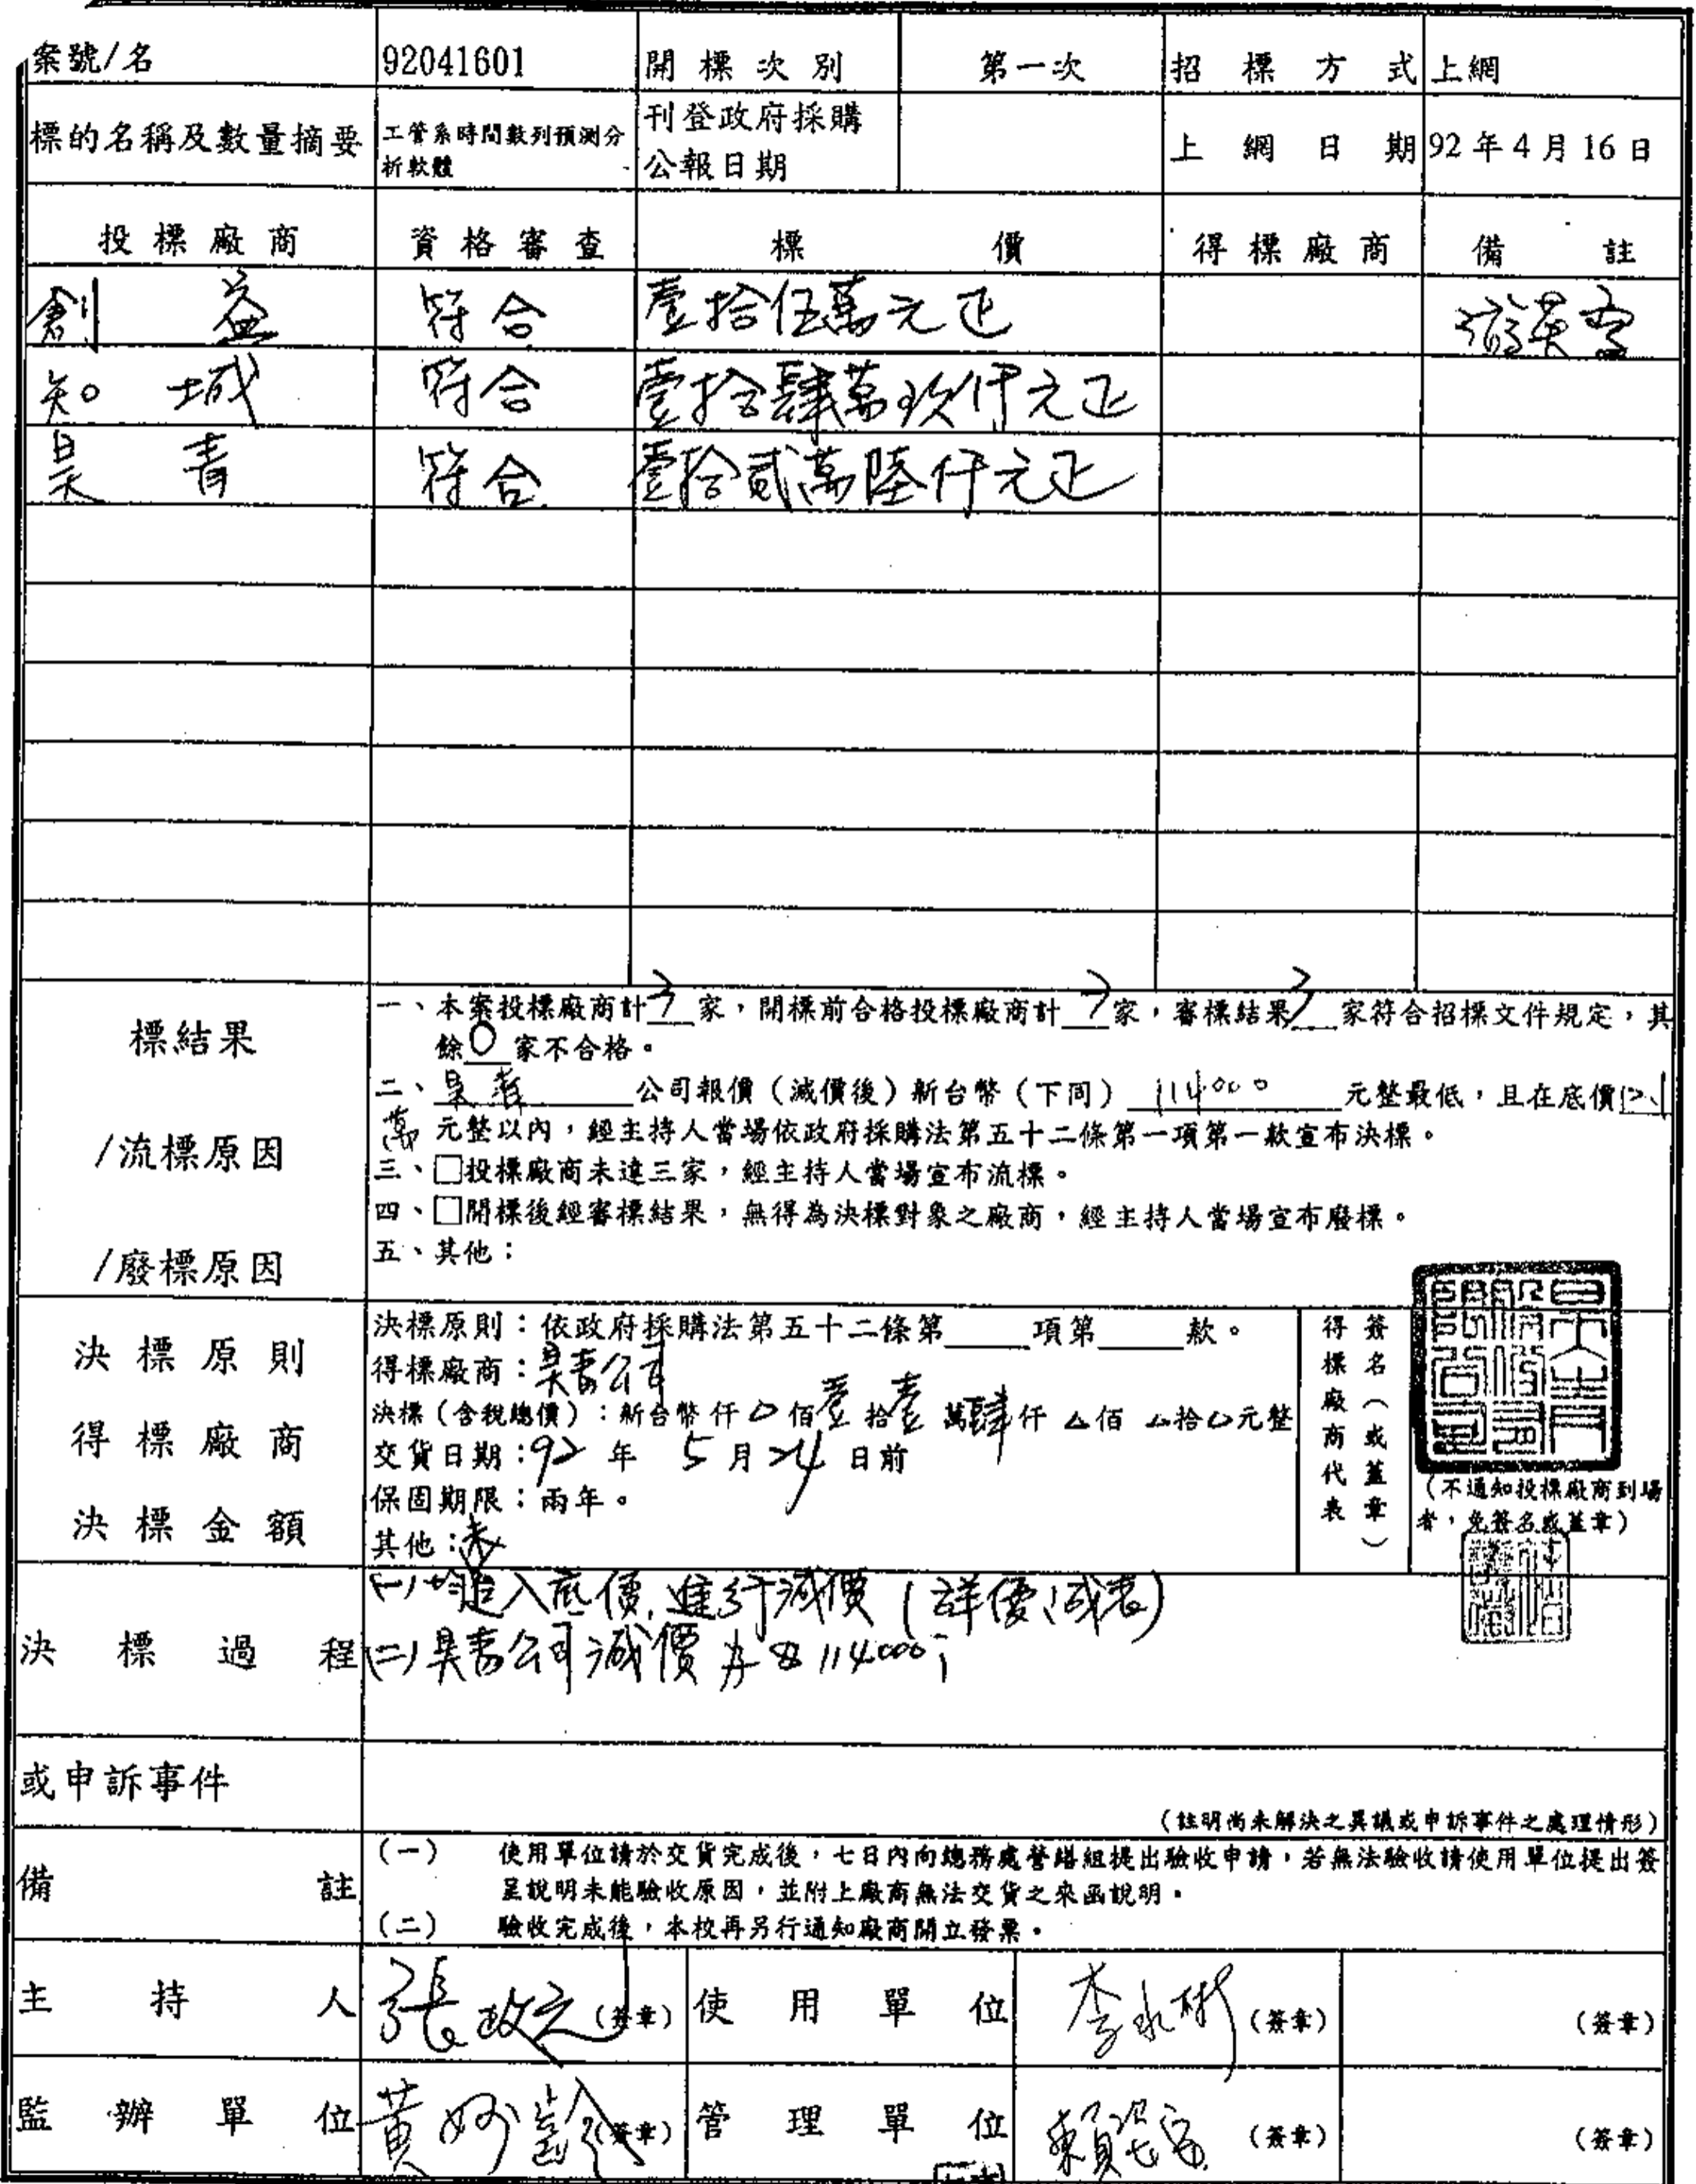 案號/名 92041601 開標次別 第一次 招標方式 上網
標的名稱及數量摘要 工管系時間數列預測分析軟體 刊登政府採購公報日期 上網日期 92年4月16日
投標廠商 資格審查 標價 得標廠商 備註
創益 符合 壹拾伍萬元正
知城 符合 壹拾肆萬玖仟元正
昊青 符合 壹拾貳萬陸仟元正
標結果
/流標原因
/廢標原因
一、本案投標廠商計3家,開標前合格投標廠商計3家,審標結果3家符合招標文件規定,其
餘0家不合格。
二、昊青公司報價(減價後)新台幣(下同)114000元整最低,且在底價
萬元整以內,經主持人當場依政府採購法第五十二條第一項第一款宣布決標。
三、□投標廠商未達三家,經主持人當場宣布流標。
四、□開標後經審標結果,無得為決標對象之廠商,經主持人當場宣布廢標。
五、其他:
決標原則
得標廠商
決標金額
決標原則:依政府採購法第五十二條第 項第 款。
得標廠商:昊青公司
決標(含稅總價):新台幣仟0佰壹拾壹萬肆仟0佰0拾0元整
交貨日期:92年5月24日前
保固期限:兩年。
其他:
得標廠商代表
簽名(或蓋章)
(不通知投標廠商到場
者,免簽名或蓋章)
決標過程
(一)均未進入底價,進行減價(詳優減表)
(二)昊青公司減價為114000;
或申訴事件
(註明尚未解決之異議或申訴事件之處理情形)
備註
(一) 使用單位請於交貨完成後,七日內向總務處營繕組提出驗收申請,若無法驗收請使用單位提出簽
呈說明未能驗收原因,並附上廠商無法交貨之來函說明。
(二) 驗收完成後,本校再另行通知廠商開立發票。
主持人 張政元(簽章) 使用單位 李永彬(簽章) (簽章)
監辦單位 黃妙齡(簽章) 管理單位 (簽章) (簽章)